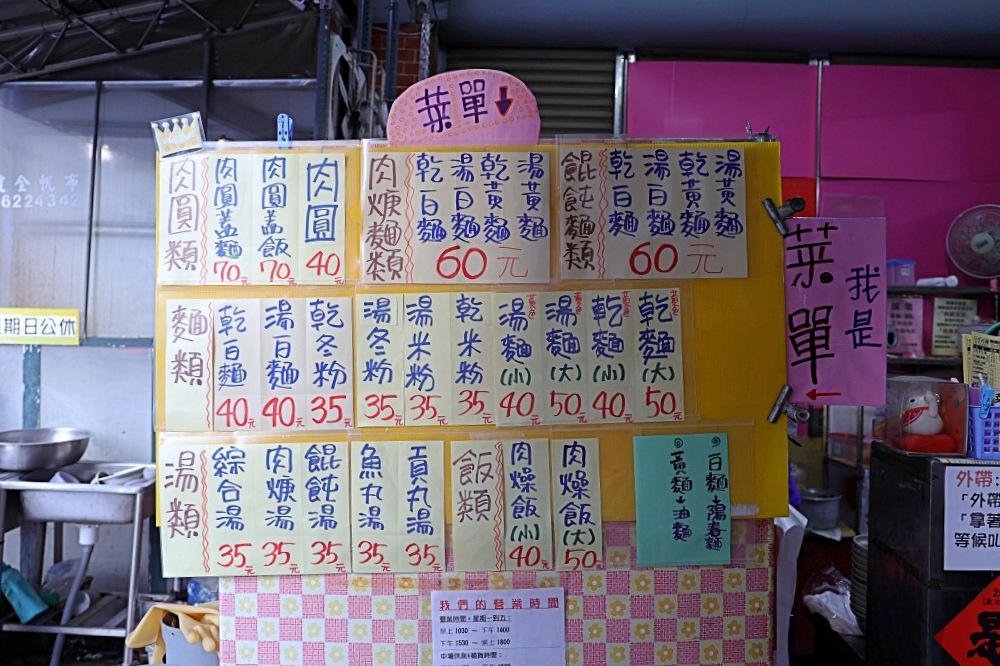 菜單↓
肉圓類
肉圓蓋麵
70元
肉圓蓋飯
70元
肉圓
40元
肉焿麵類
乾白麵
湯白麵
乾黃麵
湯黃麵
60元
餛飩麵類
乾白麵
湯白麵
乾黃麵
湯黃麵
60元
麵類
乾白麵
40元
湯白麵
40元
乾冬粉
35元
湯冬粉
35元
湯米粉
35元
乾米粉
35元
湯麵(小)
黃色
40元
湯麵(大)
黃色
50元
乾麵(小)
黃色
40元
乾麵(大)
黃色
50元
湯類
綜合湯
35元
肉焿湯
35元
餛飩湯
35元
魚丸湯
35元
貢丸湯
35元
飯類
肉燥飯(小)
40元
肉燥飯(大)
50
白麵→陽春麵
黃麵→油麵
我是
菜單
←
全帆布
6224342
期日公休
我們的營業時間
營業時間。星期一到五:
早上1030 ~ 下午1400
下午1530 ~ 晚上1800
外帶:
「外帶
「拿著
等候叫